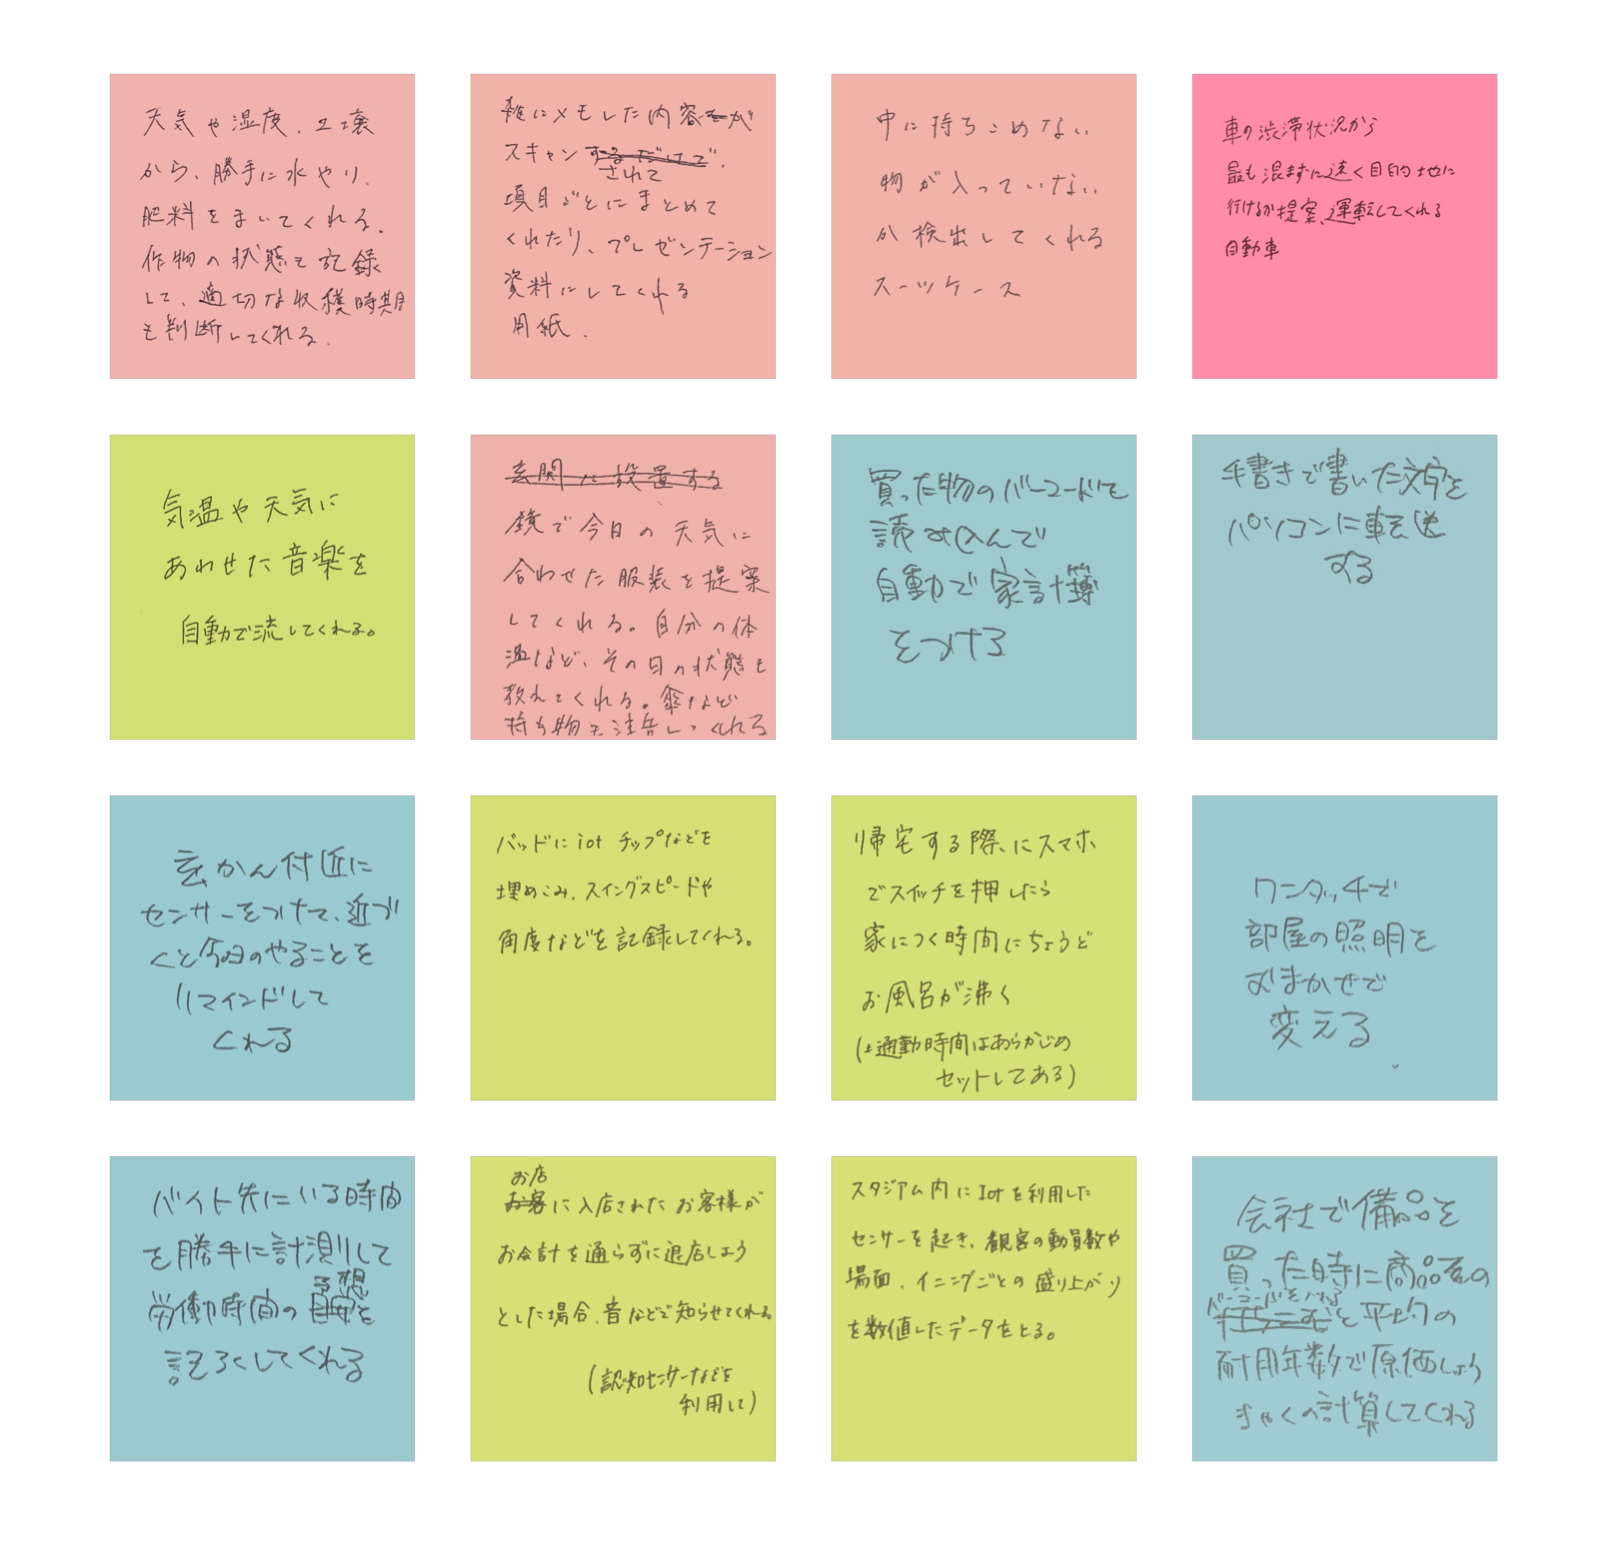 天気や湿度、土壌
から、勝手に水やり、
肥料をまいてくれる。
作物の状態も記録
して、適切な収穫時期
も判断してくれる。
雑にメモした内容をが
スキャンするだけで、
されて
項目ごとにまとめて
くれたり、プレゼンテーション
資料にしてくれる
用紙。
中に持ちこめない
物が入っていない
か検出してくれる
スーツケース
車の渋滞状況から
最も混まずに速く目的地に
行けるか提案、運転してくれる
自動車
気温や天気に
あわせた音楽を
自動で流してくれる。
玄関に設置する
鏡で今日の天気に
合わせた服装を提案
してくれる。自分の体
温など、その日の状態も
教えてくれる。傘など
持ち物も注告してくれる
買った物のバーコードを
読み込んで
自動で家計簿
をつける
手書きで書いた文字を
パソコンに転送
する
玄かん付近に
センサーをつけて、近づ
くと今日のやることを
リマインドして
くれる
バッドにiot チップなどを
埋めこみ、スイングスピードや
角度などを記録してくれる。
帰宅する際にスマホ
でスイッチを押したら
家につく時間にちょうど
お風呂が沸く
(通勤時間はあらかじめ
セットしてある)
ワンタッチで
部屋の照明を
おまかせで
変える
バイト先にいる時間
を勝手に計測して
予想
労働時間の目安を
記ろくしてくれる
お店
お客に入店されたお客様が
お会計を通らずに退店しよう
とした場合、音などで知らせてくれる。
(認知センサーなどを
利用して)
スタジアム内にIotを利用した
センサーを起き、観客の動員数や
場面、イニングごとの盛り上がり
を数値したデータをとる。
会社で備品を
買った時に商品名の
バーコードを入れる
と平均の
耐用年数で原価しょう
きゃくの計算してくれる